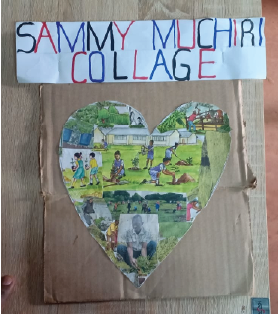 SAMMY MUCHIRI
COLLAGE